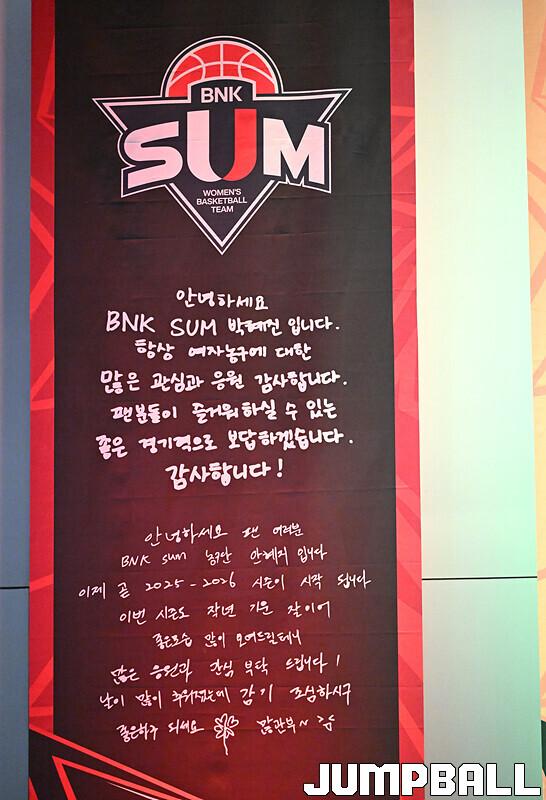 BNK
SUM
WOMEN'S
BASKETBALL
TEAM
안녕하세요
BNK SUM 박혜진 입니다.
항상 여자농구에 대한
많은 관심과 응원 감사합니다.
팬분들이 즐거워하실 수 있는
좋은 경기력으로 보답하겠습니다.
감사합니다!
안녕하세요 팬 여러분
BNK sum 농구단 안혜지 입니다
이제 곧 2025-2026 시즌이 시작 됩니다
이번 시즌도 작년 기운 잘이어
좋은모습 많이 보여드릴테니
많은 응원과 관심 부탁 드립니다!
날이 많이 추워졌는데 감기 조심하시구
좋은하루 되세요 많관부~
JUMPBALL